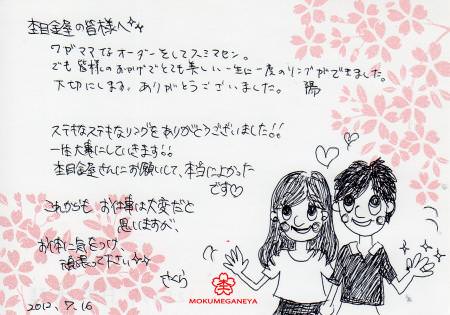 杢目金屋の皆様へ
ワガママなオーダーをしてスミマセン。
でも皆様のおかげでとても美しい一生に一度のリングができました。
大切にします。ありがとうございました。 陽
ステキなステキなリングをありがとうございました!!
一生大事にしていきます!!
杢目金屋さんにお願いして、本当によかった
です♡
これからも お仕事は大変だと
思いますが、
お体に気をつけ、
頑張って下さい
さくら
2012. 7. 16
MOKUMEGANEYA